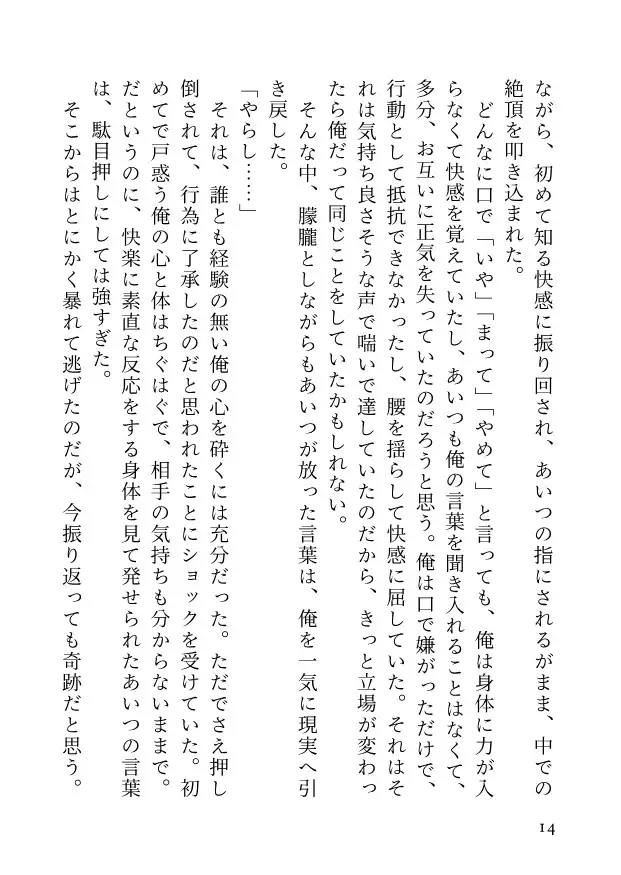 ながら、初めて知る快感に振り回され、あいつの指にされるがまま、中での
絶頂を叩き込まれた。
どんなに口で「いや」「まって」「やめて」と言っても、俺は身体に力が入
らなくて快感を覚えていたし、あいつも俺の言葉を聞き入れることはなくて、
多分、お互いに正気を失っていたのだろうと思う。俺は口で嫌がっただけで、
行動として抵抗できなかったし、腰を揺らして快感に屈していた。それはそ
れは気持ち良さそうな声で喘いで達していたのだから、きっと立場が変わっ
たら俺だって同じことをしていたかもしれない。
そんな中、朦朧としながらもあいつが放った言葉は、俺を一気に現実へ引
き戻した。
「やらし……」
それは、誰とも経験の無い俺の心を砕くには充分だった。ただでさえ押し
倒されて、行為に了承したのだと思われたことにショックを受けていた。初
めてで戸惑う俺の心と体はちぐはぐで、相手の気持ちも分からないままで。
だというのに、快楽に素直な反応をする身体を見て発せられたあいつの言葉
は、駄目押しにしては強すぎた。
そこからはとにかく暴れて逃げたのだが、今振り返っても奇跡だと思う。
14